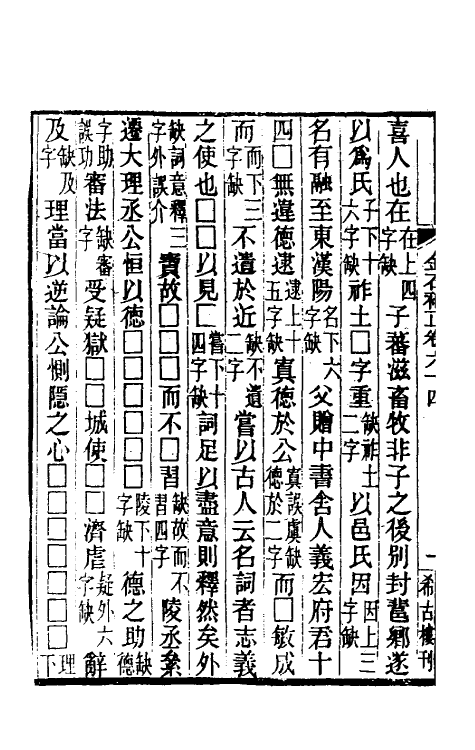 喜人也在在上四字缺子蕃滋畜牧非子之後別封鄉遂
以爲氏子下十六字缺祚土□字重缺祚土二字以邑氏因因上三字缺
名有融至東漢陽名下六字缺父贈中書舍人義宏府君十
四□無違德逮逮上十五字缺真德於公真誤虞缺德於二字而□敏成
而而下三字缺不遺於近缺不遺二字嘗以古人云名詞者志義
之使也□□以見□嘗下十四字缺詞足以盡意則釋然矣外
缺詞意釋三字外誤介賣故□□□□而不□習缺故而不習四字陵丞叅
遷大理丞公恒以德□□□□□陵下十字缺德之助缺德
字助誤功審法缺審字受疑獄□□城使□□濟虐疑外六字缺辭
及缺及字理當以逆論公惻隱之心□□□□□□□理下
金石補正卷六十四
一
希古樓刊